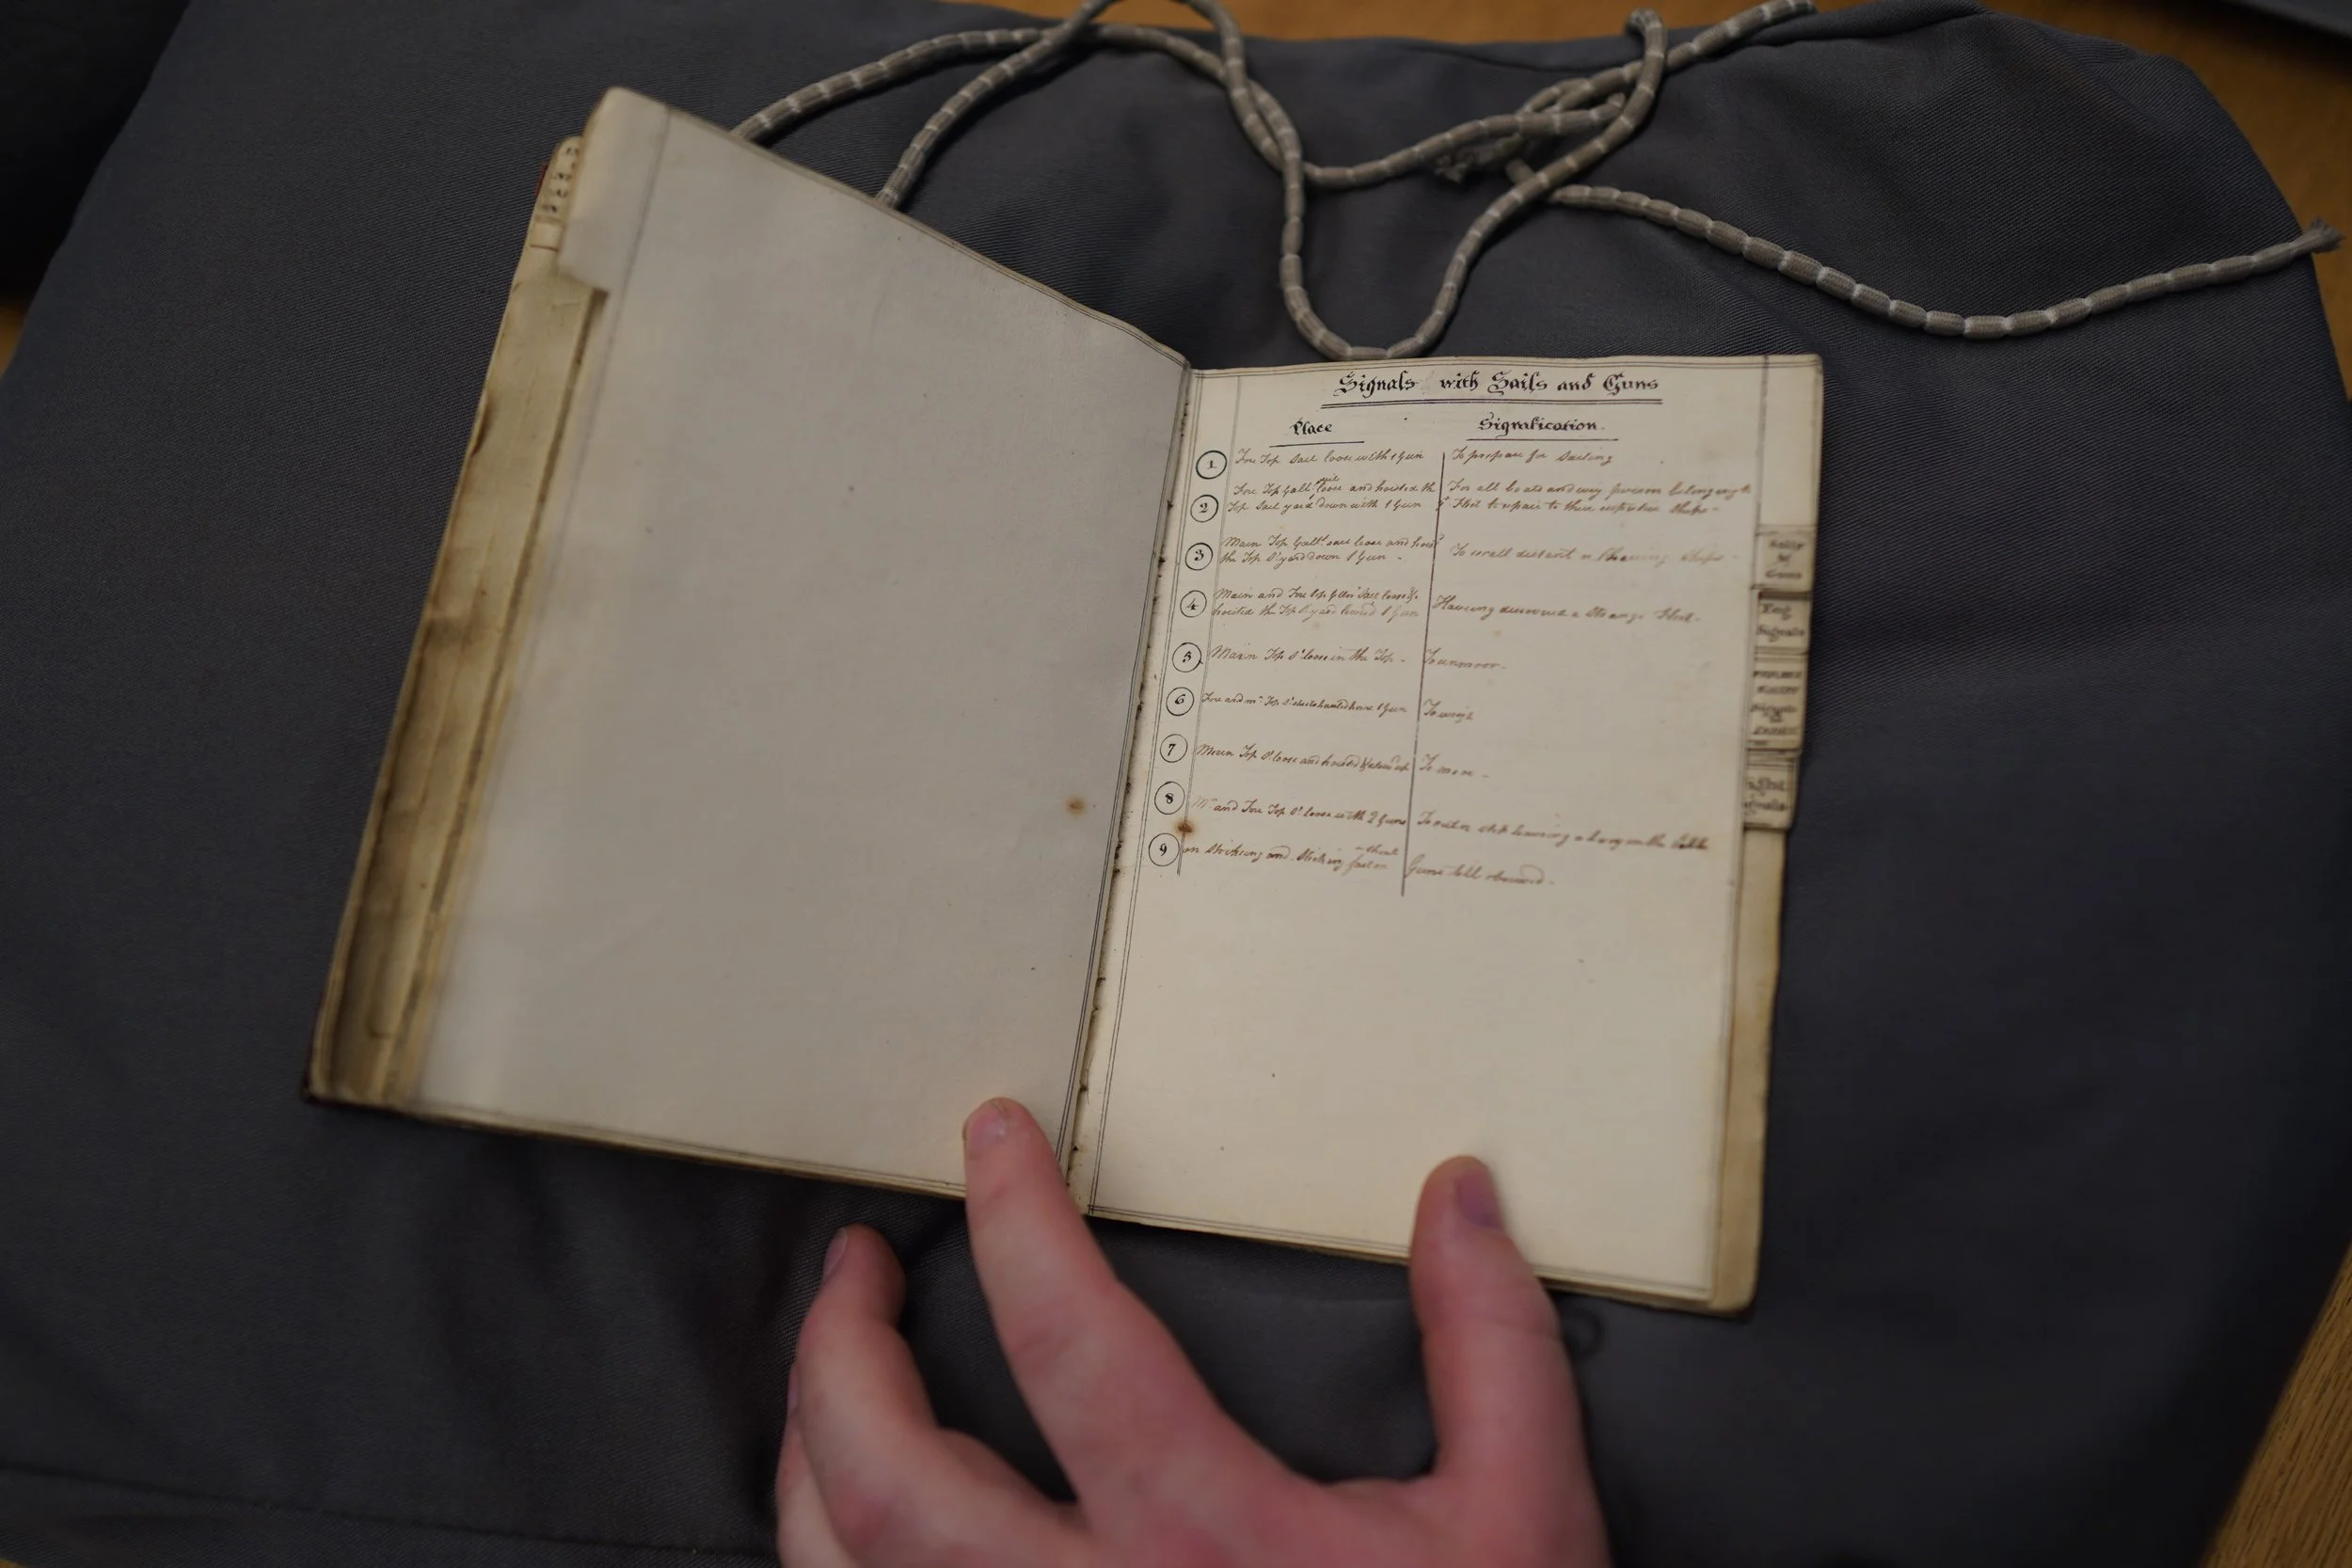 Signals with Sails and Guns
Place
Signification.
1 Fore Top Sail loose with 1 Gun
To prepare for Sailing
2 Fore Top Gall.t sail loose and hoisted the
Top Sail yard down with 1 Gun
For all boats and every person belonging to
Fleet to repair to their respective Ships -
3 Main Top Gall.t sail loose and hois.d
the Top S.l yard down 1 Gun -
To recall distant or Chaseing Ships -
4 Main and Fore top Gall.t Sail loose &
hoisted the Top S.l yard lowered 1 Gun
Haveing discovered a Strange Fleet -
5 Main Top S.l loose in the Top -
To unmoor -
6 Fore and m.n Top S.l sheets hauled home 1 Gun
To weigh
7 Main Top S.l loose and hoisted
To moor -
8 M.n and Fore Top S.l loose with 2 Guns
on the Cable
9 on Striking and Sticking fast on
a Shoal
Guns till
Sails
&
Guns
Fog
Signals
Signals